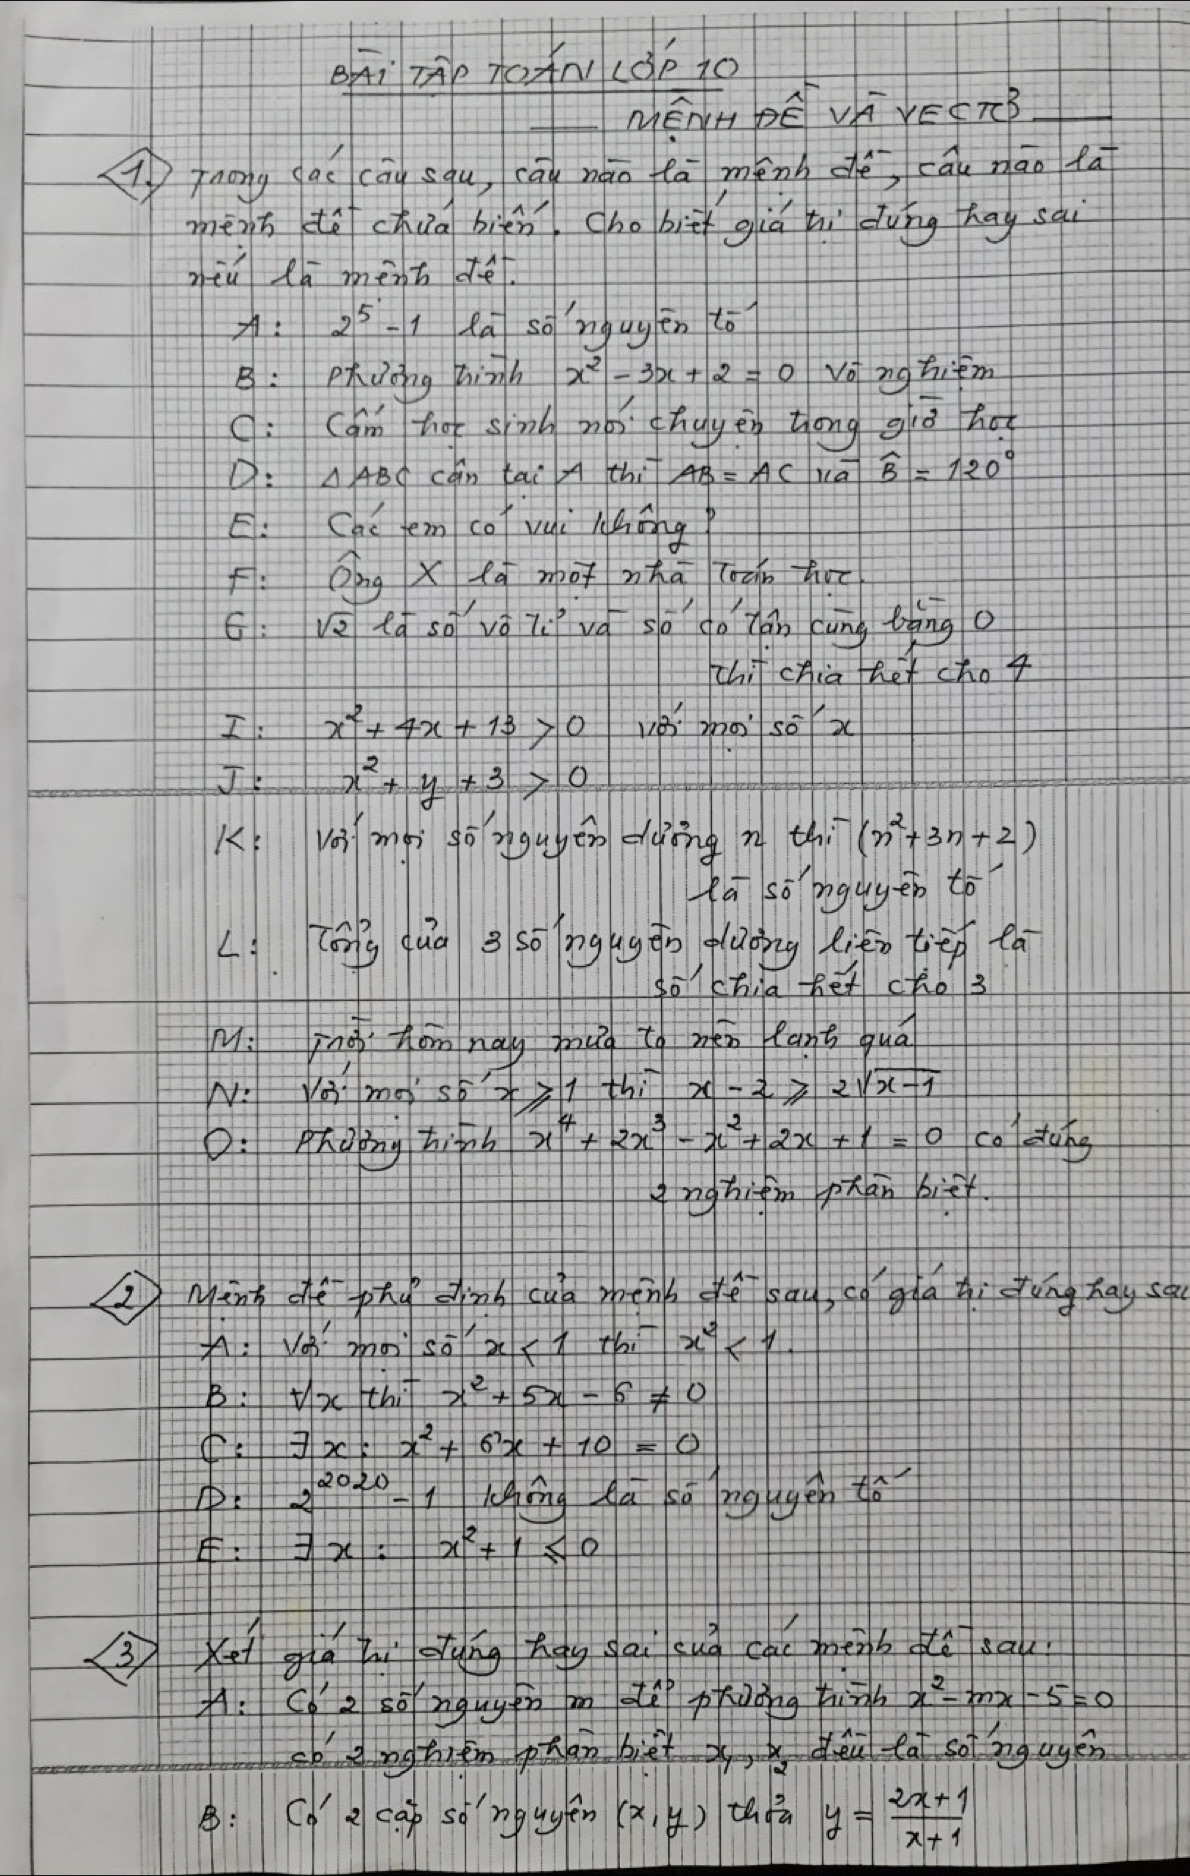 BÀI TẬP TOÁN LỚP 10
MỆNH ĐỀ VÀ VECTƠ
1. Trong các câu sau, câu nào là mệnh đề, câu nào là
mệnh đề chứa biến. Cho biết giá trị đúng hay sai
nếu là mệnh đề.
A: 2⁵ - 1 là số nguyên tố
B: Phương trình x² - 3x + 2 = 0 vô nghiệm
C: Cấm học sinh nói chuyện trong giờ học
D: △ABC cân tại A thì AB = AC và B̂ = 120°
E: Các em có vui không?
F: Ông X là một nhà Toán học.
G: √2 là số vô tỉ và số có tận cùng bằng 0
thì chia hết cho 4
I: x² + 4x + 13 > 0 với mọi số x
J: x² + y + 3 > 0
K: Với mọi số nguyên dương n thì (n² + 3n + 2)
là số nguyên tố
L: Tổng của 3 số nguyên dương liên tiếp là
số chia hết cho 3
M: Trời hôm nay mưa to nên lạnh quá
N: Với mọi số x ⩾ 1 thì x - 2 ⩾ 2√(x-1)
O: Phương trình x⁴ + 2x³ - x² + 2x + 1 = 0 có đúng
2 nghiệm phân biệt.
2 Mệnh đề phủ định của mệnh đề sau, có giá trị đúng hay sai
A: Với mọi số x < 1 thì x² < 1.
B: ∀x thì x² + 5x - 6 ≠ 0
C: ∃x: x² + 6x + 10 = 0
D: 2²⁰²⁰ - 1 không là số nguyên tố
E: ∃x: x² + 1 ⩽ 0
3 Xét giá trị đúng hay sai của các mệnh đề sau:
A: Có 2 số nguyên m để phương trình x² - mx - 5 = 0
có 2 nghiệm phân biệt x₁, x₂ đều là số nguyên
B: Có 2 cặp số nguyên (x, y) thỏa y = (2x+1)/(x+1)